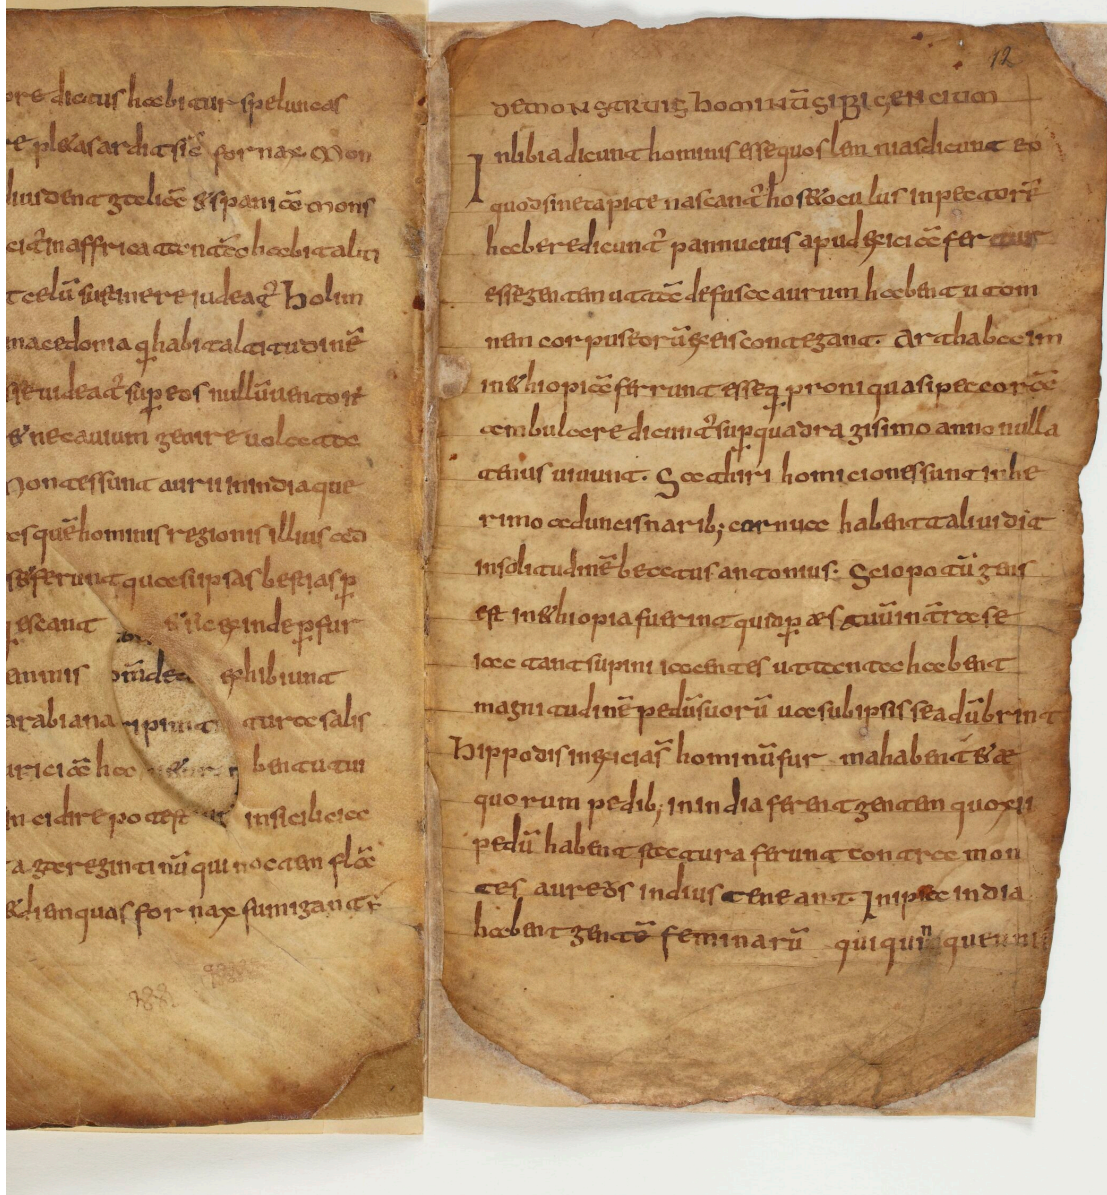 ore dictus habitur speluncas
re pleas ardit sić fornax Mon
liuident gtelicā & spanicā mons
cit̄ in affrica atantēo habitaliti
t celū sustinere iudeat̄ holim
macedonia q̄ habitaltitudinē
sse uideat̄ sup̱ eos nullū uentoR
& nec auium gewire uolatoe
Montes sunt auri in india que
es quē hominis regionis illius ad
s& ferunt quae suipsas bestias p̱
p̱escant inde p̱fur
aminis om̄dea exhibiunt
arabiana ripiunt turae salis
uriciāe hac bentutui
n cidire potest in siciliaa
a gteregintinū qui noctem flāa
& diem quas fornax fumigantr̄
12
DEMONSTRUIS HOMINŪ SIBI GENCIUM
In libia dicunt hominis esse quos lemnias dicunt eo
quod sine capite nascant̄ hos & oculus in pectorē
habere dicunt̄ pannucius apud sciciāe fertur
esse gentem ut tā de fusa aurum habent ut om
nem corpus eorū ex eis contegant. Arthabacim
in &hiopicāe ferrunt esse q̱ proni quasi peccorāe
ambulare dicunt̄ sup̱ quadragisimo anno nulla
tenus uiuunt. Satthiri homiciones sunt in he
rimo aduncis narib; cornuae habent tali uidit
in solitudinē beatus antonius. Sciopotū gens
est in &hiopia fuerint qui op̱ aes tuū in t̄ra se
iacetant supini iacentes ut tantaa habent
magnitudinē pedū suorū uae subipsis se adūbrint
hippodis in sciciās̄ hominū fur mahabent & ae
quorum pedib; in india ferent gentem quo xii
pedū habent statura ferunt contra mon
tes aureos indius teneant. In ipsa india
habent gentē feminarū qui quin quenni